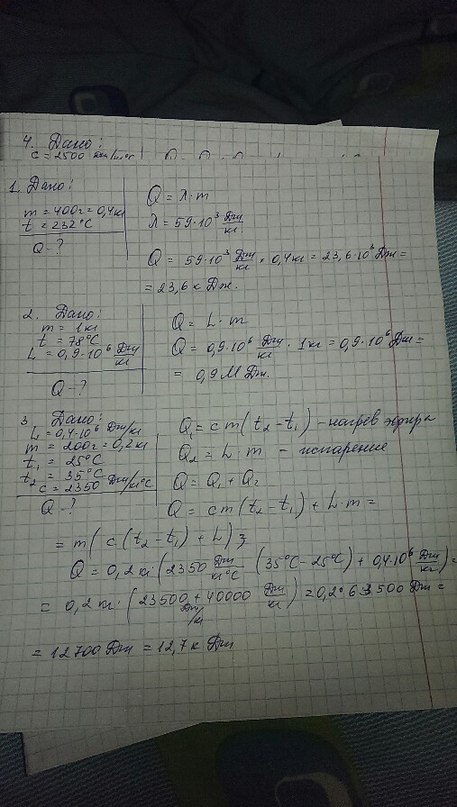 4. Дано:
c = 2500
1. Дано:
m = 400г = 0,4кг
t = 232°C
Q - ?
Q = λ·m
λ = 59·10³ Дж/кг
Q = 59·10³ Дж/кг · 0,4кг = 23,6·10³ Дж =
= 23,6 кДж.
2. Дано:
m = 1кг
t = 78°C
L = 0,9·10⁶ Дж/кг
Q - ?
Q = L·m
Q = 0,9·10⁶ Дж/кг · 1кг = 0,9·10⁶ Дж =
= 0,9 МДж.
3 Дано:
L = 0,4·10⁶ Дж/кг
m = 200г = 0,2кг
t₁ = 25°C
t₂ = 35°C
c = 2350 Дж/кг°C
Q - ?
Q₁ = cm(t₂ - t₁) - нагрев эфира
Q₂ = L·m - испарение
Q = Q₁ + Q₂
Q = cm(t₂ - t₁) + L·m =
= m(c(t₂ - t₁) + L);
Q = 0,2кг (2350 Дж/кг°C (35°C - 25°C) + 0,4·10⁶ Дж/кг) =
= 0,2кг · (23500 Дж/кг + 40000 Дж/кг) = 0,2·63500 Дж =
= 12700 Дж = 12,7 кДж